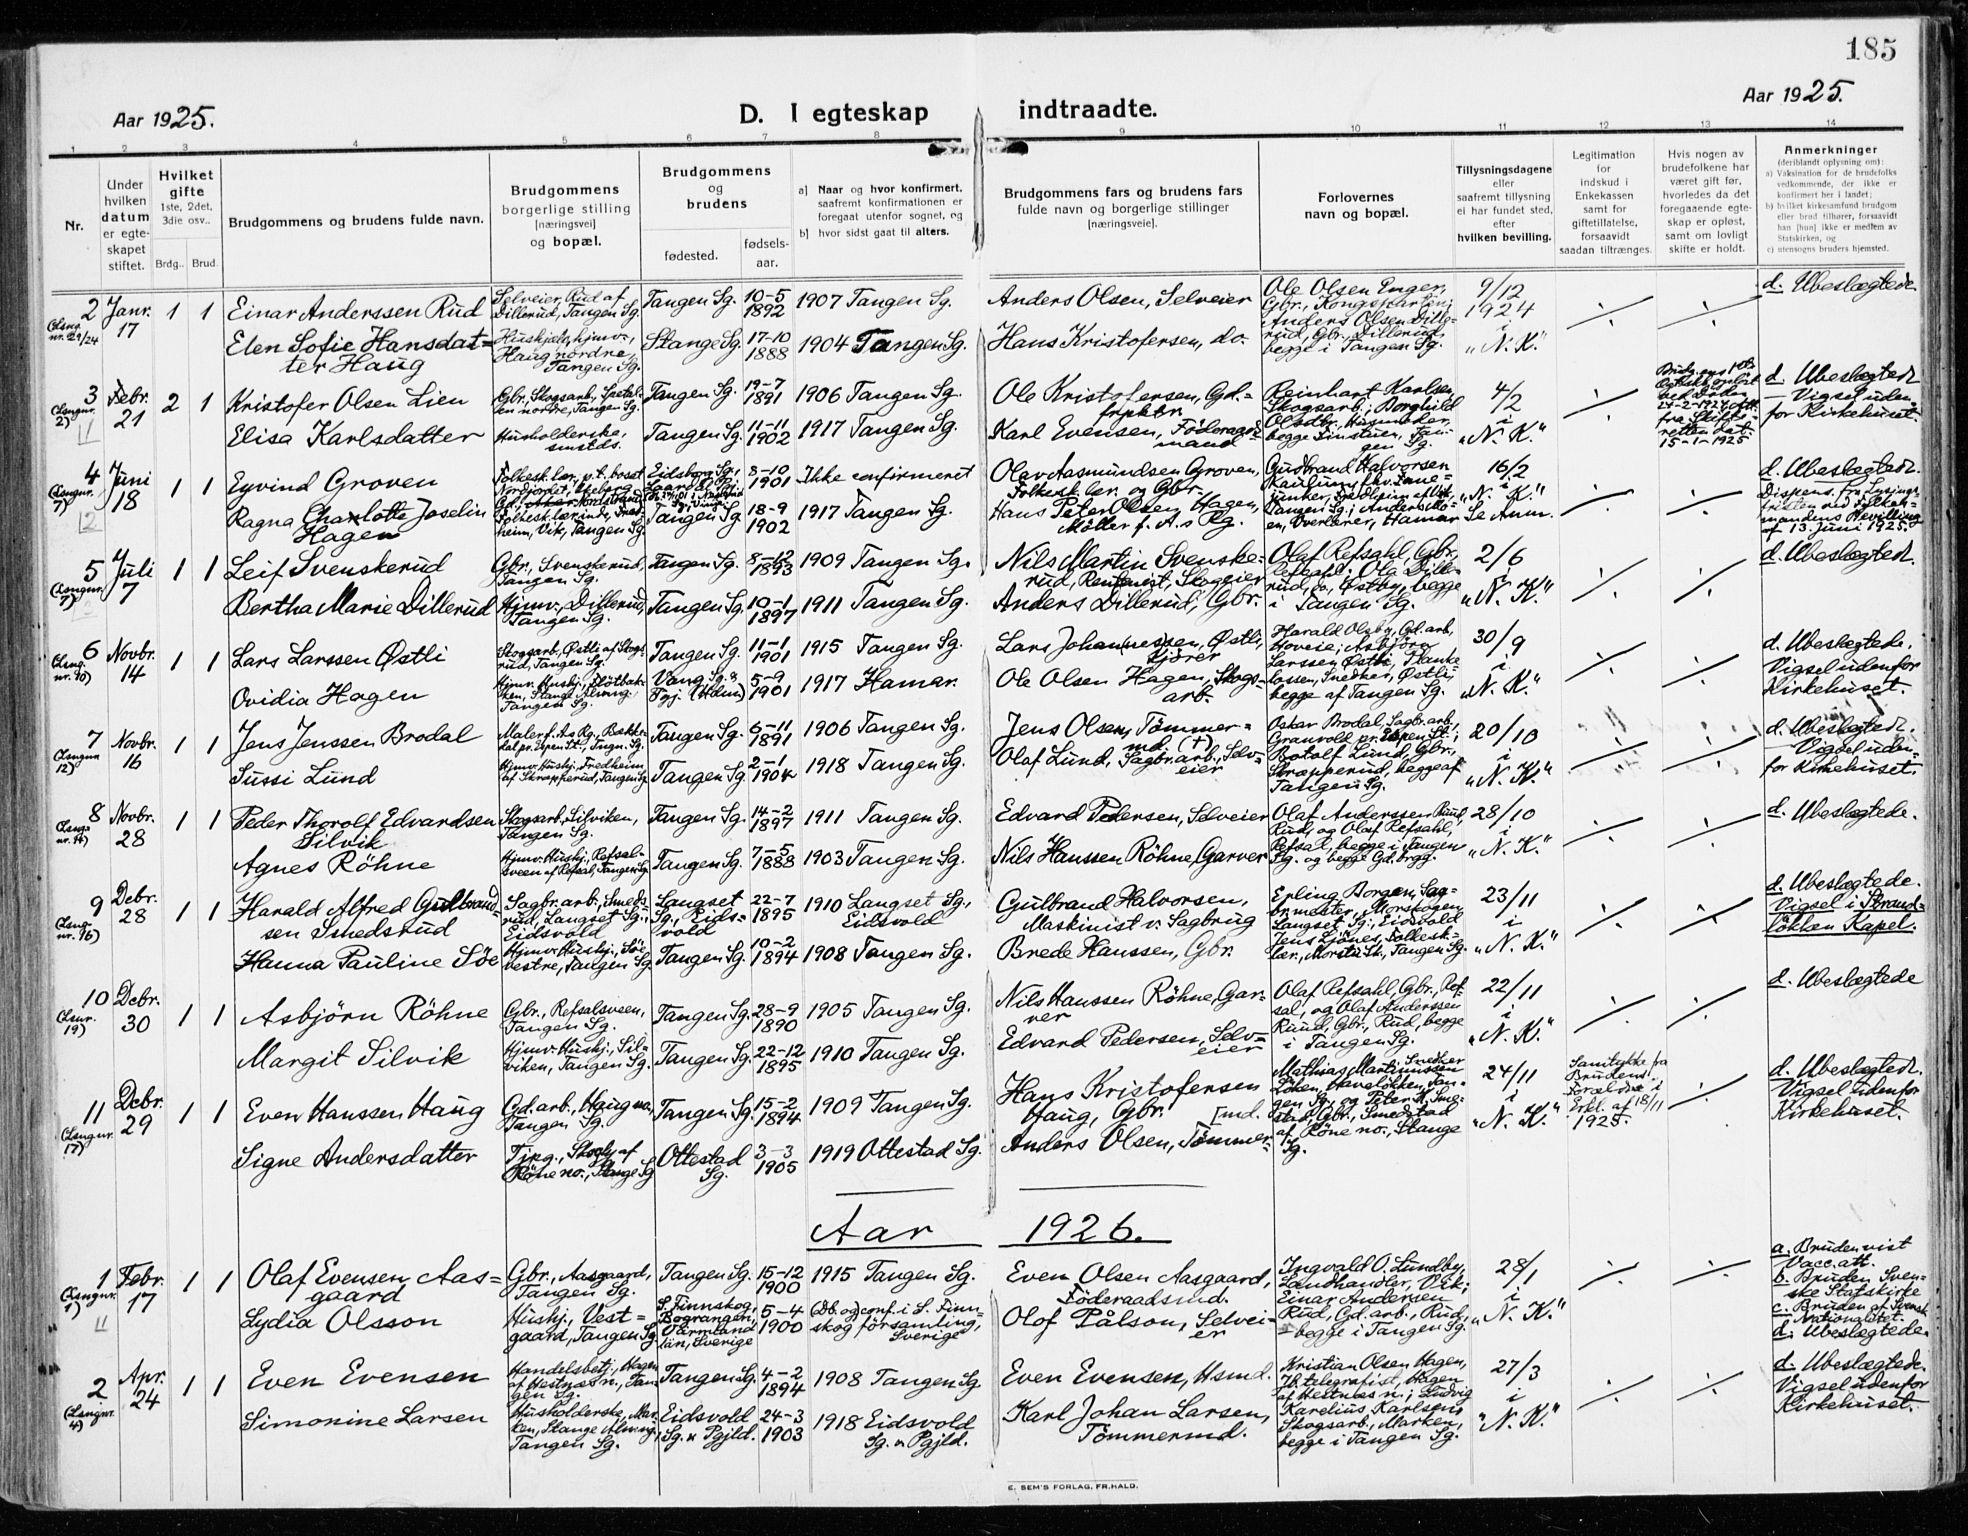 185
Aar 1925.
D. I egteskap indtraadte.
Aar 1925.
1 2 3 4 5 6 7 8 9 10 11 12 13 14
Nr.
Under hvilken datum er egteskapet stiftet.
Hvilket gifte 1ste, 2det, 3die osv..
Brdg.. Brud.
Brudgommens og brudens fulde navn.
Brudgommens borgerlige stilling [næringsvei] og bopæl.
Brudgommens og brudens
fødested.
fødsels-aar.
a] Naar og hvor konfirmert. saafremt konfirmationen er foregaat utenfor sognet, og
b] hvor sidst gaat til alters.
Brudgommens fars og brudens fars fulde navn og borgerlige stillinger [næringsveie].
Forlovernes navn og bopæl.
Tillysningsdagene eller saafremt tillysning ei har fundet sted, efter hvilken bevilling.
Legitimation for indskud i Enkekassen samt for giftetillatelse, forsaavidt saadan tiltrænges.
Hvis nogen av brudefolkene har været gift før, hvorledes da det foregaaende egteskap er opløst, samt om lovligt skifte er holdt.
Anmerkninger (deriblandt oplysning om):
a) Vaksination for de brudefolks vedkommende, der ikke er konfirmert her i landet;
b) hvilket kirkesamfund brudgom eller brud tilhører, forsaavidt han [hun] ikke er medlem av Statskirken, og
c) utensogns bruders hjemsted.
2 (Lsng. nr. 29/24) Janr. 17 1 1
Einar Anderssen Rud
Selveier, Rud af Dillerud, Tangen Sg.
Tangen Sg. 10-5 1892 1907 Tangen Sg.
Anders Olsen, Selveier
Ole Olsen Enger, Gbr., Kongsparten; Anders Olsen Dillerud, Gbr., Dillerud, begge i Tangen Sg.
9/12 1924 i "N. K."
d. Ubeslægtede.
Elen Sofie Hansdatter Haug
Haug nordre, Tangen Sg.
Stange Sg. 17-10 1888 1904 Tangen Sg.
Hans Kristofersen, do.
3 (Lsngnr. 2) Febr. 21 2 1
Kristofer Olsen Lien
Gbr., Skogsarb., nordre, Tangen Sg.
Tangen Sg. 19-7 1891 1906 Tangen Sg.
Ole Kristofersen, Gd.-
Reinhart Karlsen, Skogsarb.; Borghild
begge Finstuen, Tangen Sg.
4/2 i "N. K."
15-1-1925
d. Ubeslægtede. Vigsel udenfor Kirkehuset.
Elisa Karlsdatter
Husholderske, smstds.
Tangen Sg. 11-11 1902 1917 Tangen Sg.
Karl Evensen, Föderaadsmand
4 (Lsngnr. 7) Juni 18 1 1
Eyvind Groven
8-10 1901 Ikke confirmeret
Olav Aasmundsen Groven, Folkesk.lær. og Gbr.
Gudbrand Halvorsen
16/2 i "N. K." Se Anm.
d. Ubeslægtede. Dispens. fra Lysingsfristen ved Fylkesmandens Bevilling af 13. Juni 1925.
Ragna Charlotte Joselin Hagen
Folkesk.lærerinde, Fredheim, Vik, Tangen Sg.
Tangen Sg. 18-9 1902 1917 Tangen Sg.
Hans Peter Olsen Hagen, Möller f. A.s Rg.
5 (Lsngnr. 7) Juli 7 1 1
Leif Svenskerud
Gbr., Svenskerud, Tangen Sg.
Tangen Sg. 8-12 1893 1909 Tangen Sg.
Nils Martin Svenskerud, Rentenist, Skogeier
Olaf Refsahl, Gbr., Refsahl; Ola Dillerud, do., Østby, begge i Tangen Sg.
2/6 i "N. K."
d. Ubeslægtede.
Bertha Marie Dillerud
Hjmv., Dillerud, Tangen Sg.
Tangen Sg. 10-1 1897 1911 Tangen Sg.
Anders Dillerud, Gbr.
6 (Lsng. nr. 10) Novbr. 14 1 1
Lars Larssen Østli
Skogsarb., Østli af Skogsrud, Tangen Sg.
Tangen Sg. 11-1 1901 1915 Tangen Sg.
Lars Johannessen, Østli, Kjörer
Harald Olsby, Gd.arb., Hoveie; Asbjörn Larssen Østli, Plankelassen, Snedker, Østli, begge af Tangen Sg.
30/9 i "N. K."
d. Ubeslægtede. Vigsel udenfor Kirkehuset.
Ovidia Hagen
Vang Sg. & Pgj. (Hdm) 5-9 1901 1917 Hamar.
Ole Olsen Hagen, Skogsarb.
7 (Lsngnr. 12) Novbr. 16 1 1
Jens Jenssen Brodal
Tangen Sg. 6-11 1891 1906 Tangen Sg.
Jens Olsen, Tömmermd. (+)
Oskar Brodal, Sagbr.arb., Granvold pr. Espen St.; Botolf Lund, Gbr., Skrapperud, begge af Tangen Sg.
20/10 i "N. K."
d. Ubeslægtede. Vigsel udenfor Kirkehuset.
Sussi Lund
Hjmv. Hushj., Fredheim af Skrapperud, Tangen Sg.
Tangen Sg. 2-1 1904 1918 Tangen Sg.
Olaf Lund, Sagbr.arb., Selveier
8 (Lsng. nr. 14) Novbr. 28 1 1
Peder Thorolf Edvardsen Silvik
Skogsarb., Silviken, Tangen Sg.
Tangen Sg. 14-2 1897 1911 Tangen Sg.
Edvard Pedersen, Selveier
Olaf Anderssen Ruud, Rud, og Olaf Refsahl, Refsal, begge i Tangen Sg. og begge Gd.brgg.
28/10 i "N. K."
d. Ubeslægtede.
Agnes Röhne
Hjmv. Hushj., Refsalsveen af Refsal, Tangen Sg.
Tangen Sg. 7-5 1888 1903 Tangen Sg.
Nils Hanssen Röhne, Garver
9 (Lsng. nr. 16) Debr. 28 1 1
Harald Alfred Gulbrandsen Smedstud
Sagbr.arb., Smedsrud, Langset Sg., Eidsvold
Langset Sg., Eidsvold 22-7 1895 1910 Langset Sg., Eidsvold
Gulbrand Halvorsen, Maskinist v. Sagbrug
Erling Borgen, Sagbr.mester, Morskogen, Langset Sg., Eidsvold; Jens Ljönes, Folkesk.lær., Morsta Sk., Tangen Sg.
23/11 i "N. K."
d. Ubeslægtede. Vigsel i Strandlökken Kapel.
Hanna Pauline Söe
Hjmv. Hushj., Söe vestre, Tangen Sg.
Tangen Sg. 10-2 1894 1908 Tangen Sg.
Brede Hanssen, Gbr.
10 (Lsnr. 19) Debr. 30 1 1
Asbjörn Röhne
Gbr., Refsalsveen, Tangen Sg.
Tangen Sg. 28-9 1890 1905 Tangen Sg.
Nils Hanssen Röhne, Garver
Olaf Refsahl, Gbr., Refsal, og Olaf Anderssen Ruud, Gbr., Rud, begge i Tangen Sg.
22/11 i "N. K."
d. Ubeslægtede
Margit Silvik
Hjmv. Hushj., Silviken, Tangen Sg.
Tangen Sg. 22-12 1895 1910 Tangen Sg.
Edvard Pedersen, Selveier
11 (Lsngnr. 17) Debr. 29 1 1
Even Hanssen Haug
Gd.arb., Haug no., Tangen Sg.
Tangen Sg. 15-2 1894 1909 Tangen Sg.
Hans Kristofersen Haug, Gbr.
Mathias Martinussen Löken, Snedker, Tangen Sg., og Peter K. Smestad, Gbr., Smedstad af Röne no., Stange Sg.
24/11 i "N. K."
Samtykke fra Brudens Forældre i Erkl. af 18/11 1925.
d. Ubeslægtede. Vigsel udenfor Kirkehuset.
Signe Andersdatter
Röne no., Stange Sg
Ottestad Sg. 3-3 1905 1919 Ottestad Sg.
Anders Olsen, Tömmermd.
Aar 1926.
1 (Lsngnr. 1) Febr. 17 1 1
Olaf Evensen Aasgaard
Gbr., Aasgaard, Tangen Sg.
Tangen Sg. 15-12 1900 1915 Tangen Sg.
Even Olsen Aasgaard, Föderaadsmd.
Ingvald O. Lundby, Landhandler, Vik; Einar Andersen Rud, Gd.arb., Rud, begge i Tangen Sg.
28/1 i "N. K."
a. Bruden vist Vacc.att.
b. Bruden Svenske Statskirke
c. Bruden af Svensk Nationalitet.
d. Ubeslægtede.
Lydia Olsson
Hushj., Vestgaard, Tangen Sg
S. Finnskog, Bograngen, Värmlands län, Sverige 5-4 1900 (Db. og) conf. i S. Finnskog församling, Sverige
Olof Pålson, Selveier
2 (Lsngnr. 4) Apr. 24 1 1
Even Evensen
Handelsbetj., Hagen af Hestnæs n., Tangen Sg.
Tangen Sg. 4-2 1894 1908 Tangen Sg
Even Evensen, Hsmd.
Kristian Olsen Hagen, Hagen af Hestnæs n.; Ludvig Karelius Karlsen, Skogsarb., Marken, begge i Tangen Sg.
27/3 i "N. K."
d. Ubeslægtede. Vigsel udenfor Kirkehuset.
Simonine Larsen
Husholderske, Marken, Stange Alming, Tangen Sg.
Eidsvold Sg. & Pgjld. 24-3 1903 1918 Eidsvold Sg. & Pgjld.
Karl Johan Larsen, Tömmermd.
E. SEM'S FORLAG, FR.HALD.